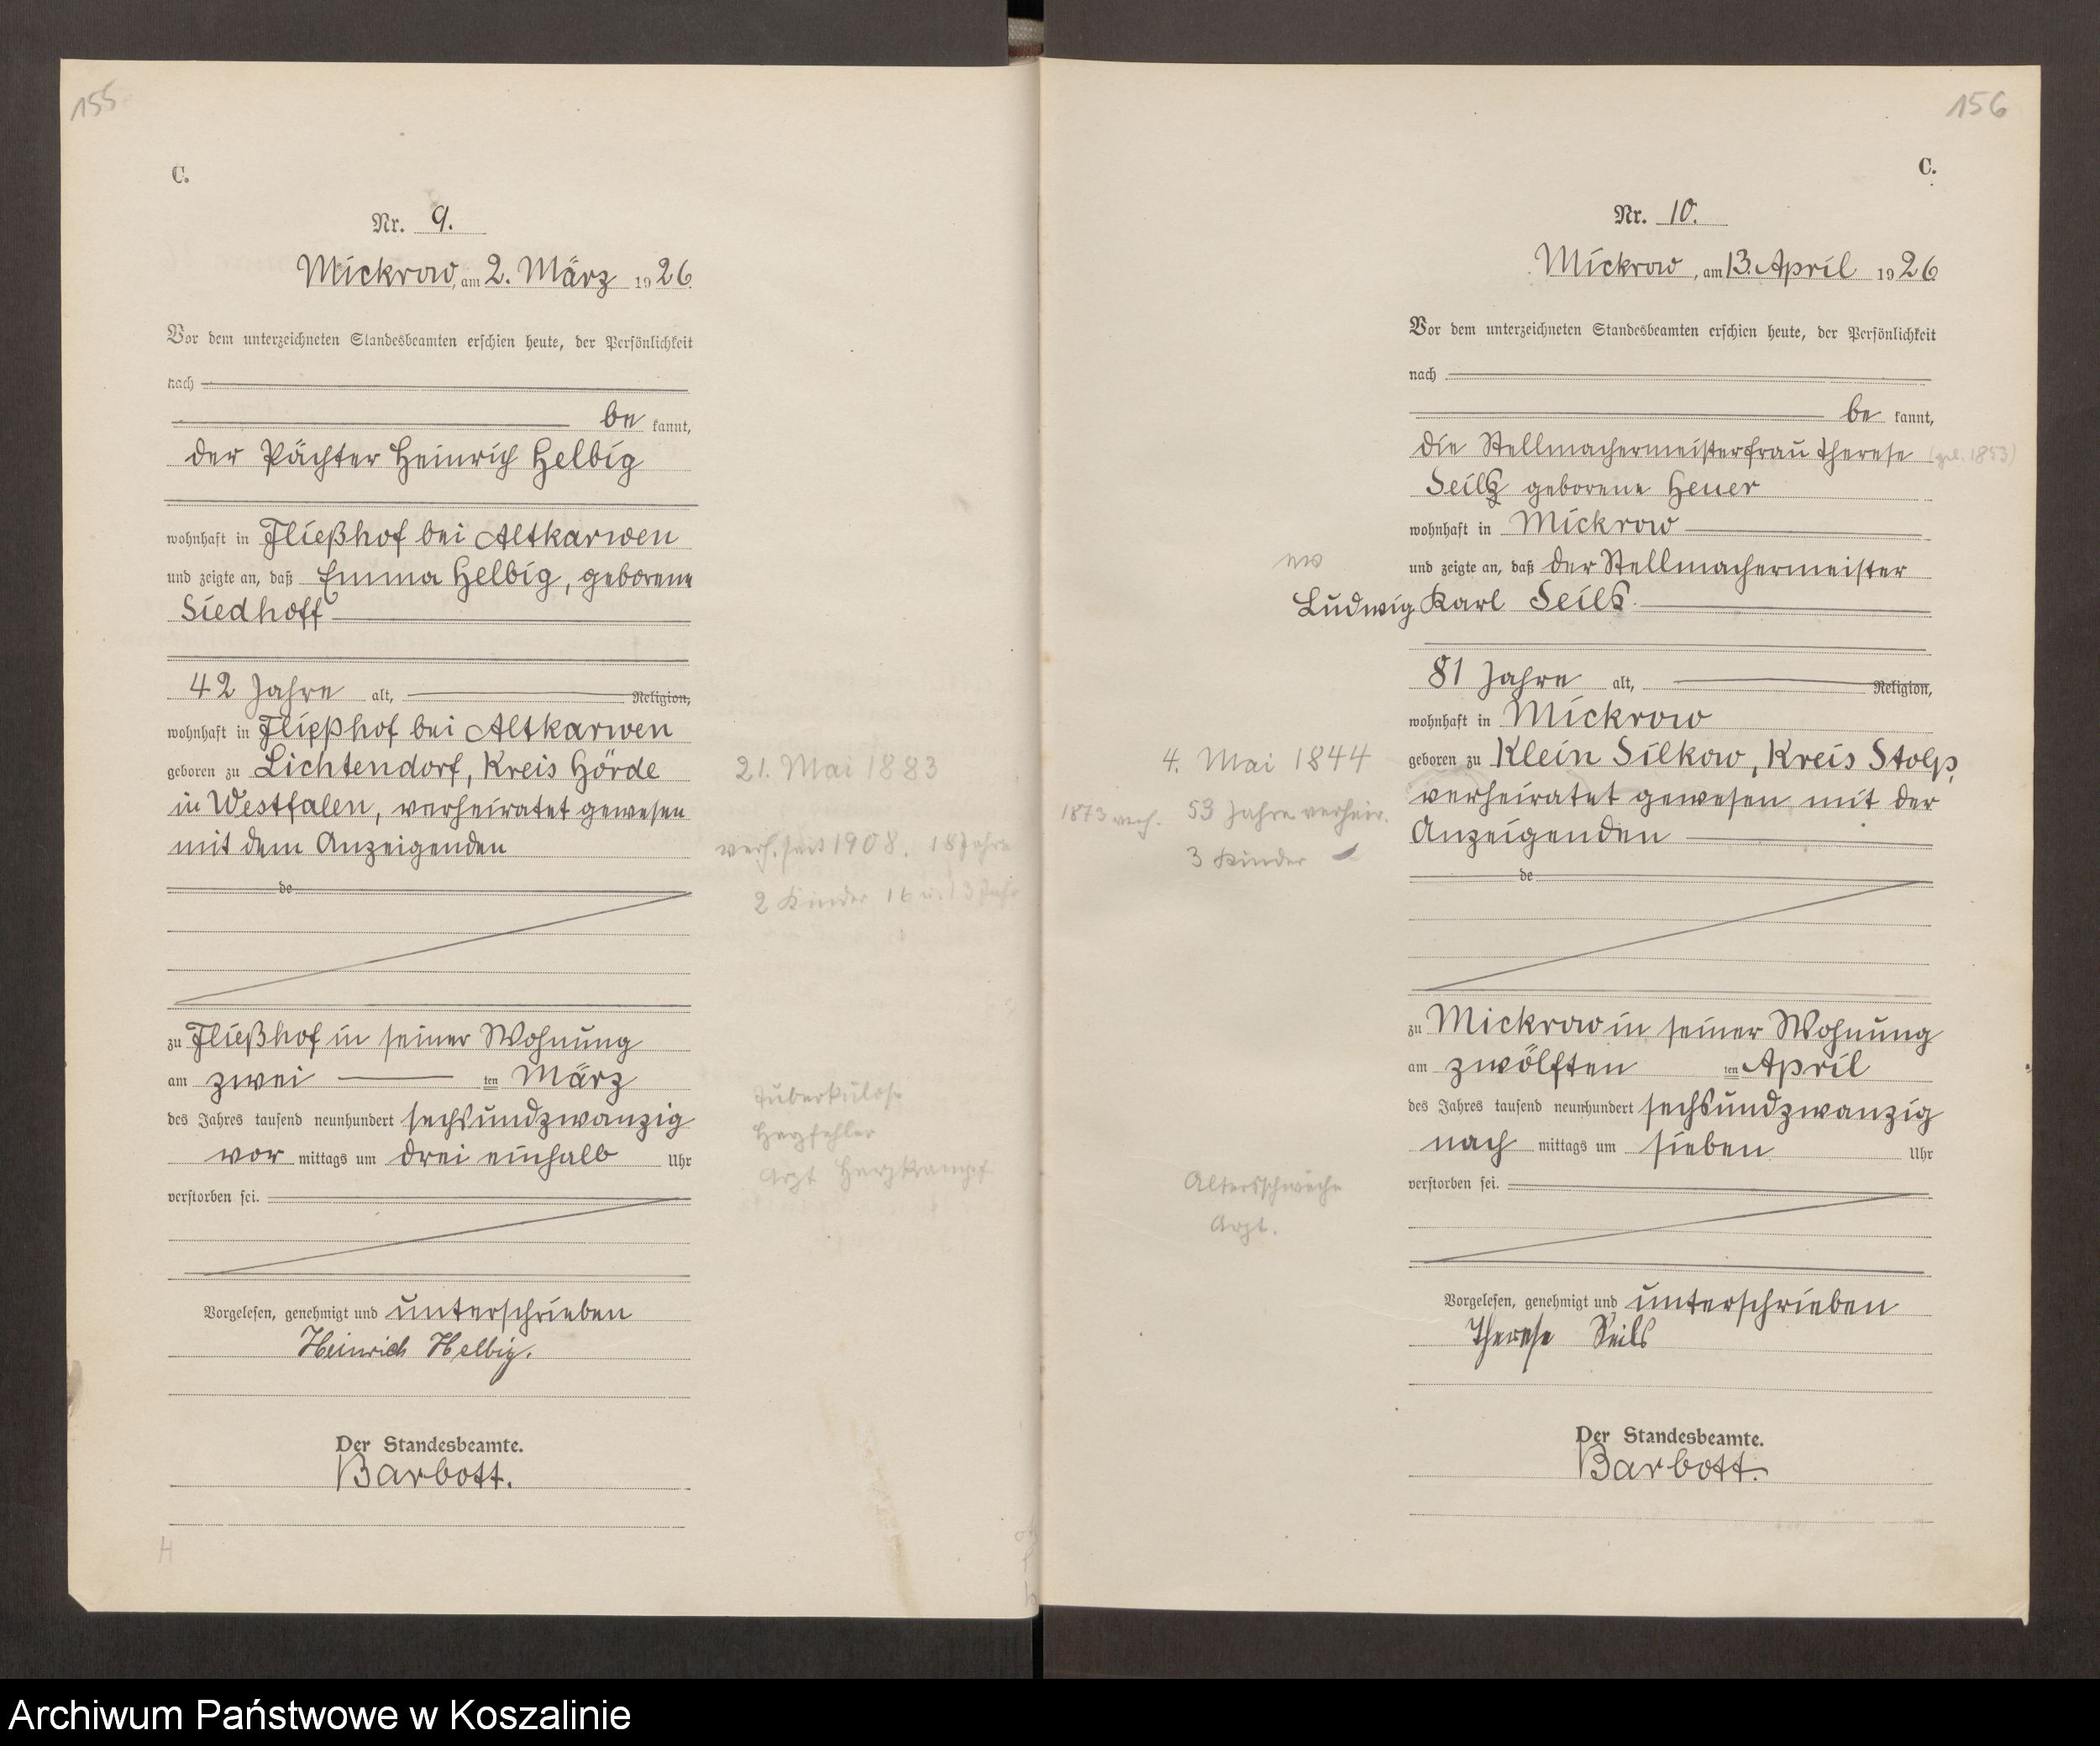 155
C.
Nr. 9.
Mickrow, am 2. März 1926.
Vor dem unterzeichneten Standesbeamten erschien heute, der Persönlichkeit
nach
be kannt,
der Pächter Heinrich Helbig
wohnhaft in Fließhof bei Altkarwen
und zeigte an, daß Emma Helbig, geborene
Siedhoff
42 Jahre alt, Religion,
wohnhaft in Fließhof bei Altkarwen
geboren zu Lichtendorf, Kreis Hörde
in Westfalen, verheiratet gewesen
mit dem Anzeigenden
de
zu Fließhof in seiner Wohnung
am zwei ten März
des Jahres tausend neunhundert sechsundzwanzig
vor mittags um drei einhalb Uhr
verstorben sei.
Vorgelesen, genehmigt und unterschrieben
Heinrich Helbig.
Der Standesbeamte.
Barbott.
H
21. Mai 1883
verh. seit 1908. 18 Jahre
2 Kinder 16 u. 13 Jahr
Tuberkulose
Herzfehler
Arzt Herzkrampf
156
C.
Nr. 10.
Mickrow, am 13. April 1926.
Vor dem unterzeichneten Standesbeamten erschien heute, der Persönlichkeit
nach
be kannt,
die Stellmachermeisterfrau Therese (geb. 1853)
Seils geborene Heuer
wohnhaft in Mickrow
und zeigte an, daß der Stellmachermeister
Ludwig Karl Seils.
81 Jahre alt, Religion,
wohnhaft in Mickrow
4. Mai 1844 geboren zu Klein Silkow, Kreis Stolp,
1873 verh. 53 Jahre verheir. verheiratet gewesen mit der
3 Kinder Anzeigenden
de
zu Mickrow in seiner Wohnung
am zwölften ten April
des Jahres tausend neunhundert sechsundzwanzig
nach mittags um sieben Uhr
Altersschwäche verstorben sei.
Arzt.
Vorgelesen, genehmigt und unterschrieben
Therese Seils
Der Standesbeamte.
Barbott.
Archiwum Państwowe w Koszalinie